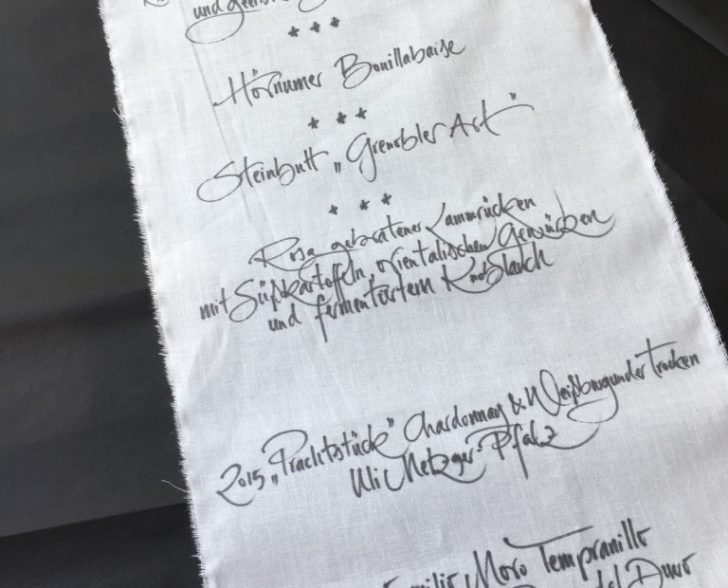 und
***
Hörnumer Bouillabaise
***
Steinbutt „Grenobler Art"
***
Rosa gebratener Lammrücken
mit Süßkartoffeln, orientalischen Gewürzen
und fermentiertem Knoblauch
2015 „Prachtstück" Chardonnay & Weißburgunder trocken
Uli Metzger - Pfalz
Emilio Moro Tempranillo
del Duero